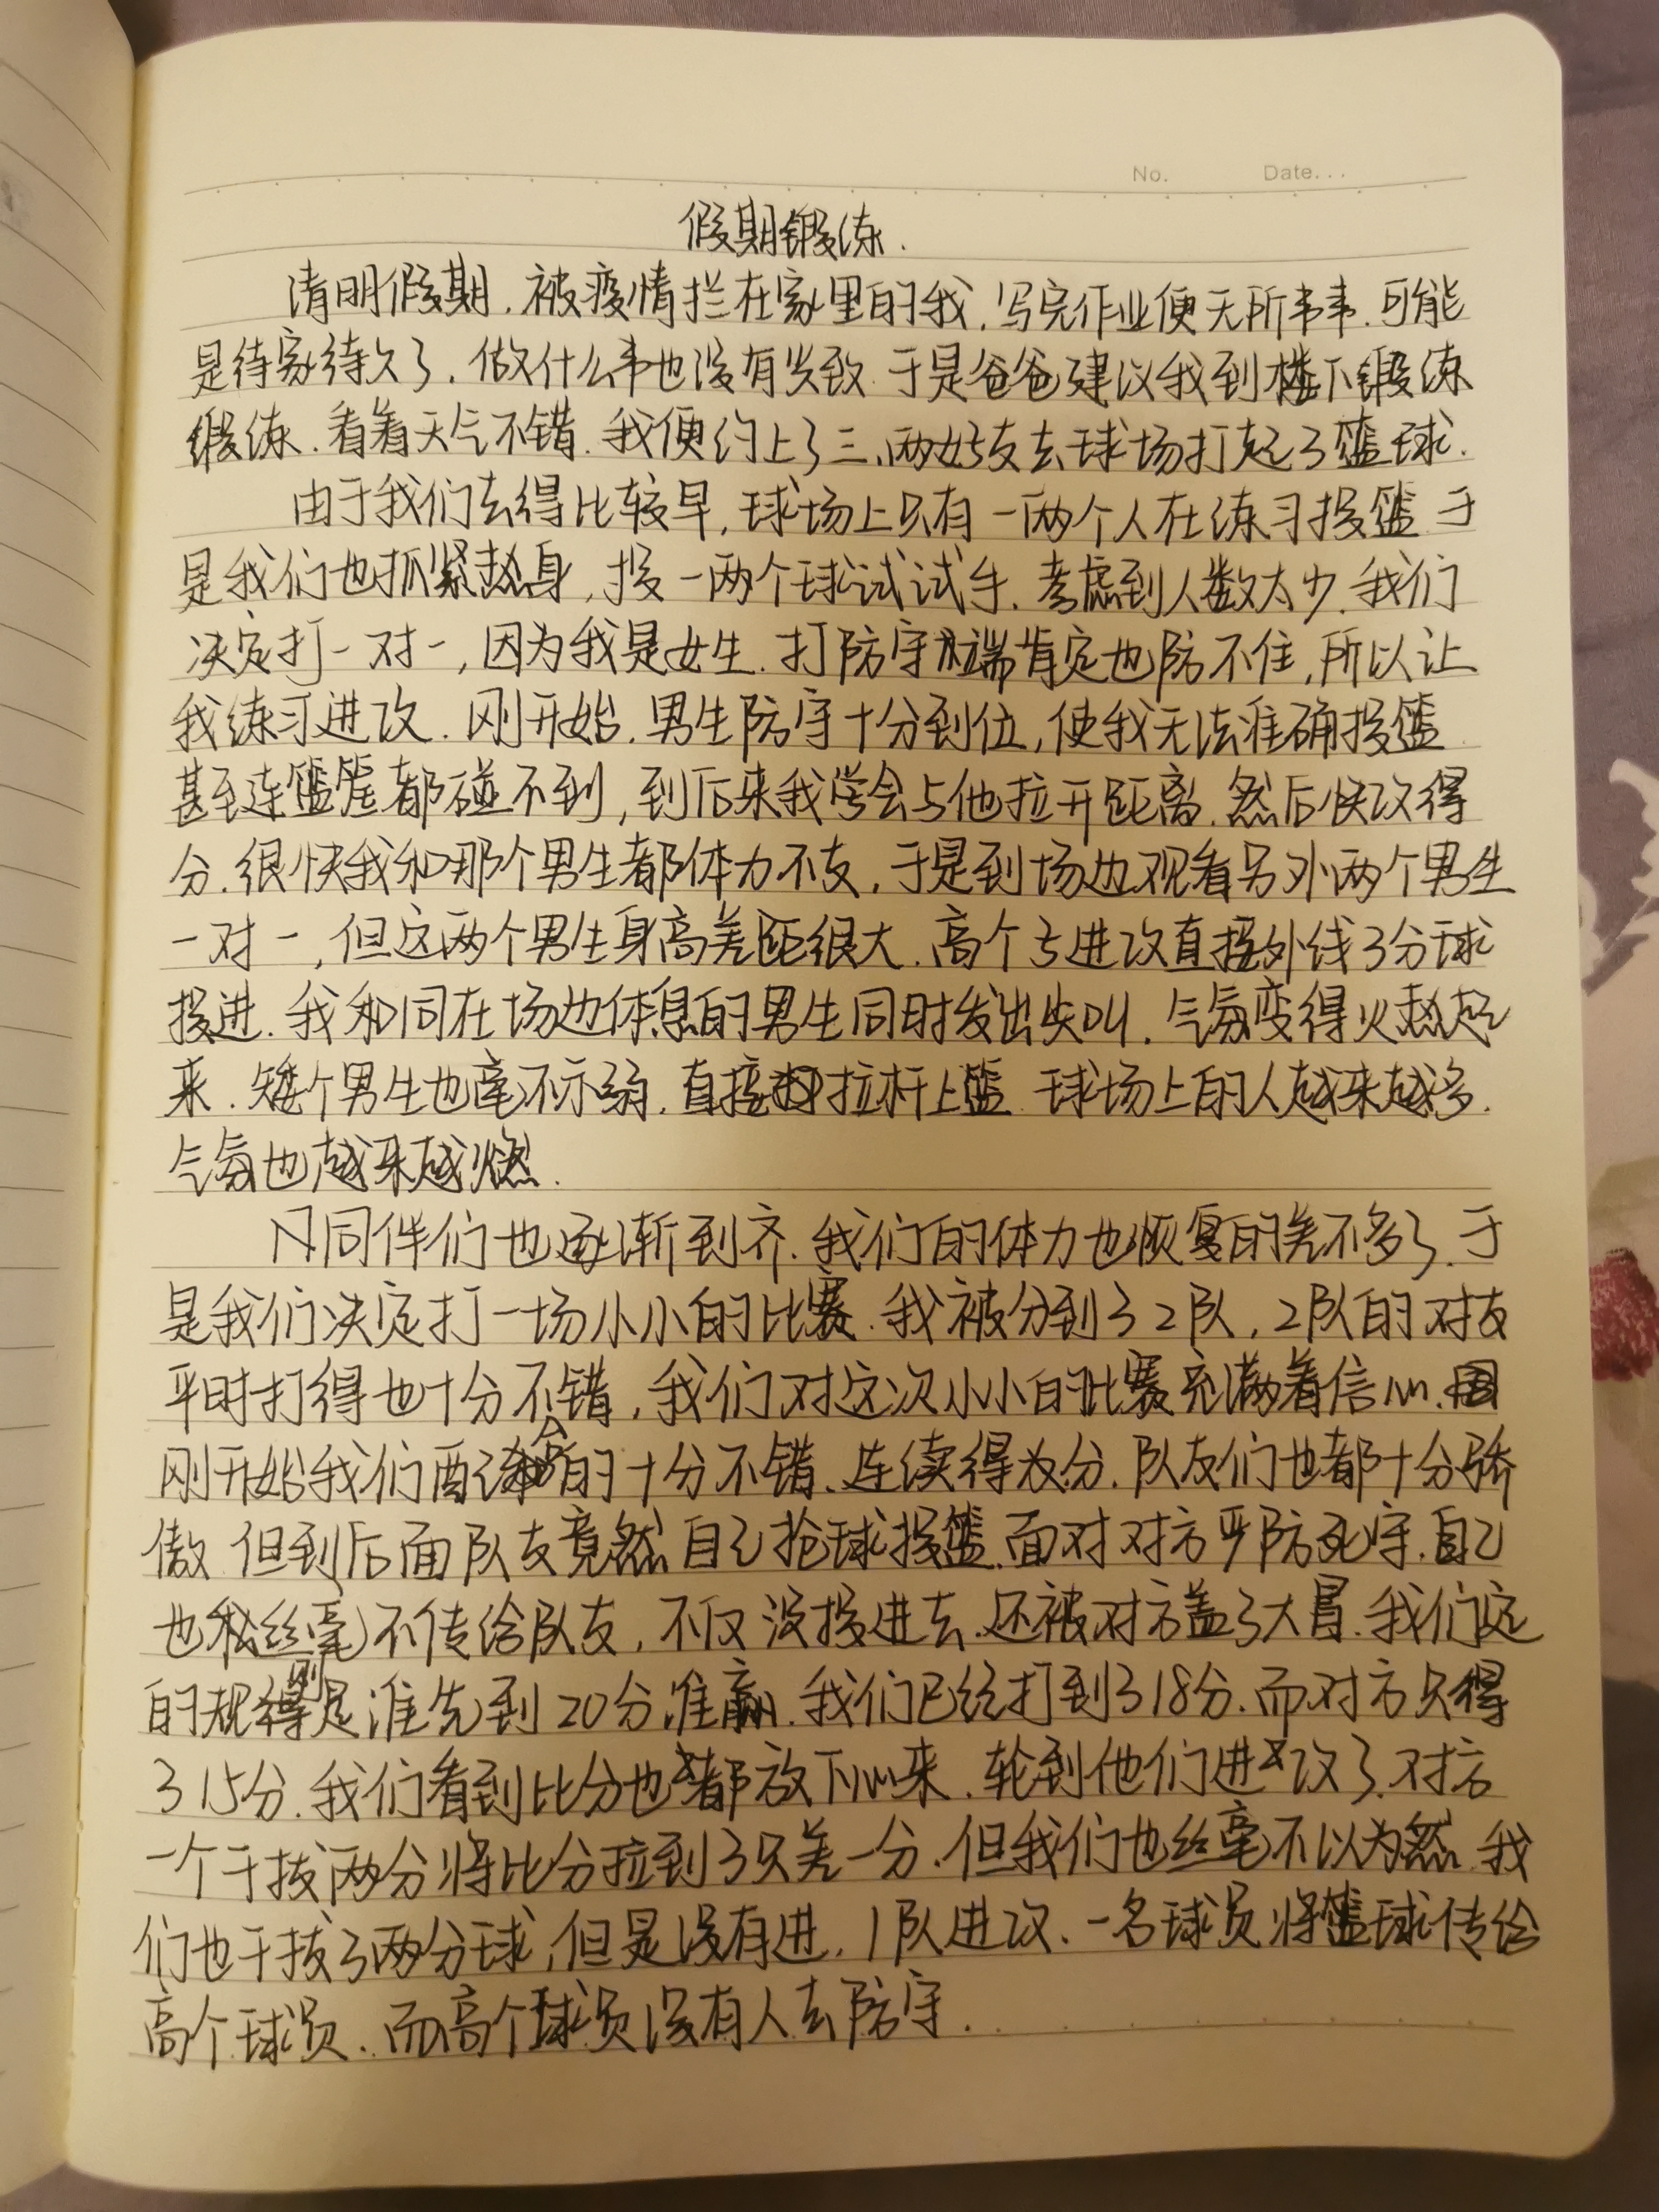 No. Date...
假期锻练.
清明假期.被疫情拦在家里的我.写完作业便无所事事.可能
是待家待久了.做什么事也没有兴致.于是爸爸建议我到楼下锻练
锻练.看着天气不错.我便约上了三、两好友去球场打起了篮球.
由于我们去得比较早,球场上只有一两个人在练习投篮.于
是我们也抓紧热身,投一两个球试试手.考虑到人数太少.我们
决定打一对一,因为我是女生.打防守端肯定也防不住,所以让
我练习进攻.刚开始.男生防守十分到位,使我无法准确投篮
甚至连篮筐都碰不到,到后来我学会与他拉开距离.然后快攻得
分.很快我和那个男生都体力不支,于是到场边观看另外两个男生
一对一,但这两个男生身高差距很大.高个子进攻直接外线3分球
投进.我和同在场边休息的男生同时发出尖叫.气氛变得火热起
来.矮个男生也毫不示弱.直接拉杆上篮.球场上的人越来越多.
气氛也越来越燃.
同伴们也逐渐到齐.我们的体力也恢复的差不多了.于
是我们决定打一场小小的比赛.我被分到了2队,2队的对友
平时打得也十分不错,我们对这次小小的比赛充满着信心.
刚开始我们配合的十分不错.连续得分.队友们也都十分骄
傲.但到后面队友竟然自己抢球投篮.面对对方严防死守.自己
也丝毫不传给队友,不仅没投进去.还被对方盖了大冒.我们定
的规则是准先到20分准赢.我们已经打到了18分.而对方只得
了15分.我们看到比分也都放下心来.轮到他们进攻了.对方
一个干拔两分将比分拉到了只差一分.但我们也丝毫不以为然.我
们也干拔了两分球,但是没有进.1队进攻.一名球员将篮球传给
高个球员.而高个球员没有人去防守.